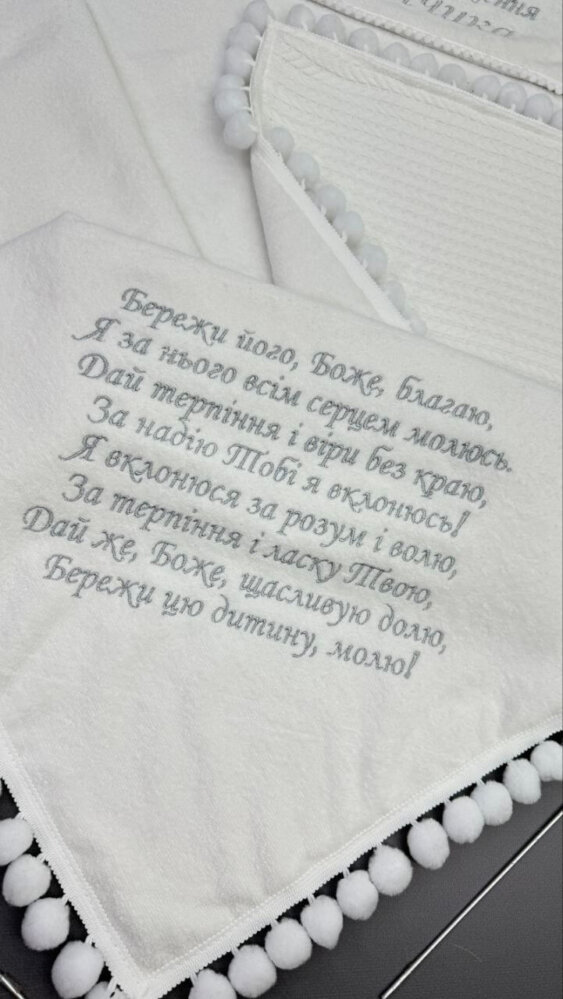 Бережи його, Боже, благаю,
Я за нього всім серцем молюсь.
Дай терпіння і віри без краю,
За надію Тобі я вклонюсь!
Я вклонюся за розум і волю,
За терпіння і ласку Твою,
Дай же, Боже, щасливую долю,
Бережи цю дитину, молю!